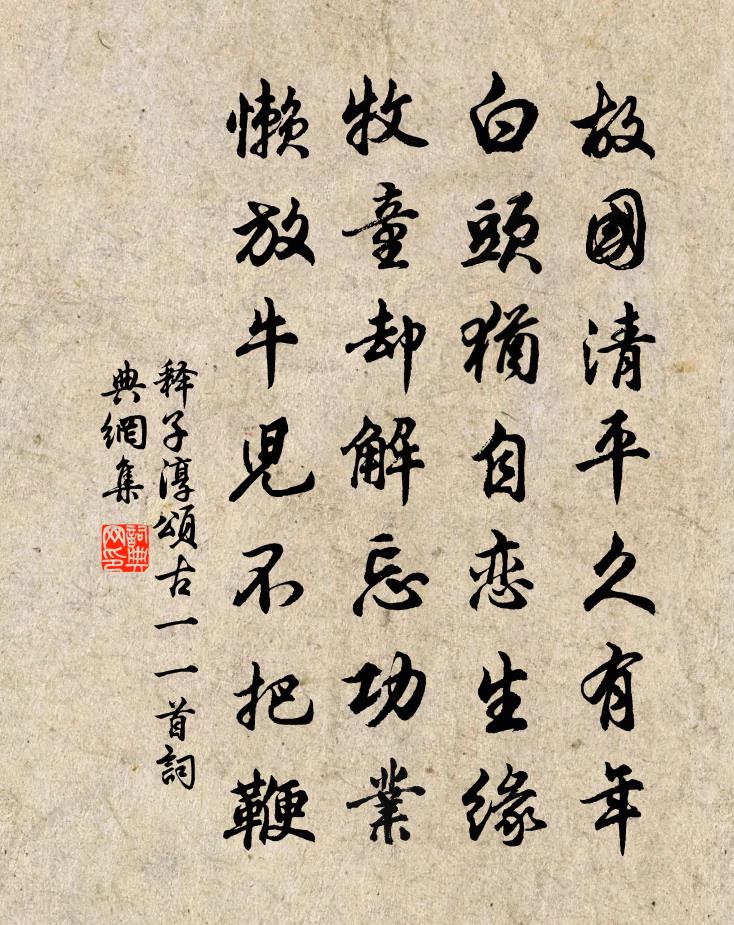 故國清平久有年
白頭猶自恋生緣
牧童却解忘功業
懶放牛兒不把鞭
释子淳頌古一一首詞
典網集
詞典
网印